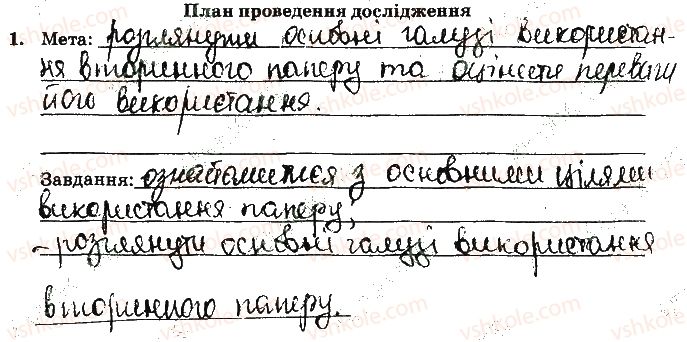 План проведення дослідження
1. Мета: розглянути основні галузі використан-
ня вторинного паперу та оцінити переваги
його використання.
Завдання: ознайомитися з основними цілями
використання паперу;
- розглянути основні галузі використання
вторинного паперу.